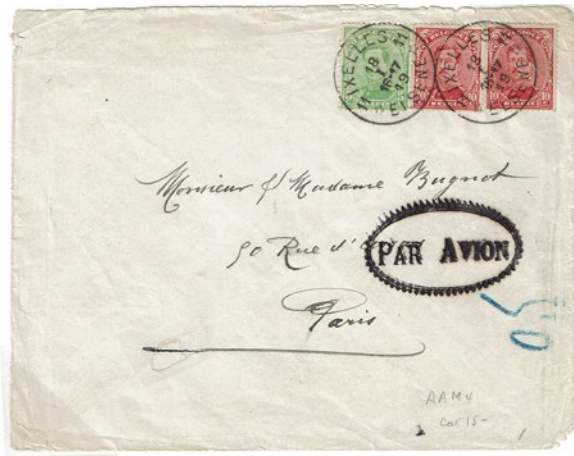 IXELLES 11
18
I
16-17
19
11 ELSENE
IXELLES 11
18
I
16-17
19
11 ELSENE
10 10
Monsieur & Madame Bugnot
50 Rue d'
PAR AVION
Paris
AAM4
Cat 15-